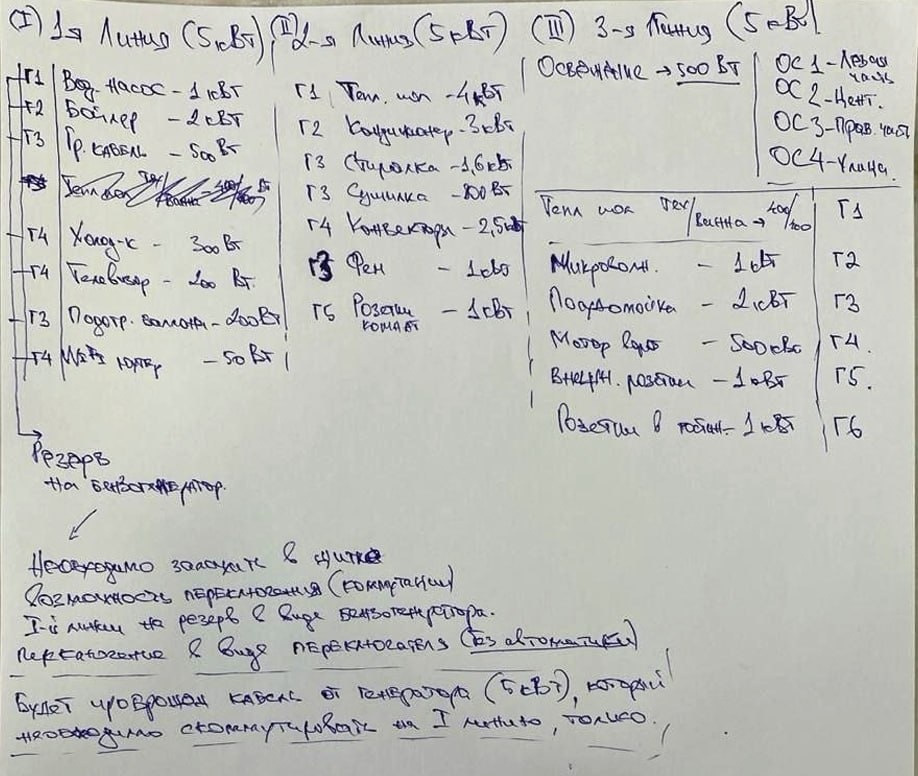 (I) 1я Линия (5 кВт)
Г1 Вод. насос - 1 кВт
Г2 Бойлер - 2 кВт
Г3 Гр. кабель - 500 Вт
Г4 Холод-к - 300 Вт
Г4 Телевизор - 200 Вт.
Г3 Подогр. баллона - 200 Вт
Г4 - 50 Вт
Резерв
на бензогенератор.
(II) 2-я Линия (5 кВт)
Г1 Тепл. пол - 4 кВт
Г2 Кондиционер - 3 кВт
Г3 Стиралка - 1,6 кВт
Г3 Сушилка - 100 Вт
Г4 Конвектора - 2,5 кВт
Г3 Фен - 1 кВт
Г5 Розетки - 1 кВт
комнат
(III) 3-я Линия (5 кВт)
Освещение → 500 Вт
ОС 1 - Левая
часть
ОС 2 - Цент.
ОС 3 - Прав. часть
ОС 4 - Улица.
Тепл пол Тех/Ванна → 400/100 Г1
Микроволн. - 1 кВт Г2
Посудомойка - 2 кВт Г3
Мотор ворот - 500 кВт Г4.
Внешн. розетки - 1 кВт Г5.
Розетки в гостин. - 1 кВт Г6
Необходимо заложить в щитке
возможность переключения (коммутации)
I-й линии на резерв в виде бензогенератора.
Переключение в виде переключателя (без автоматики)
Будет проброшен кабель от генератора (5 кВт), который
необходимо скоммутировать на I линию, только.